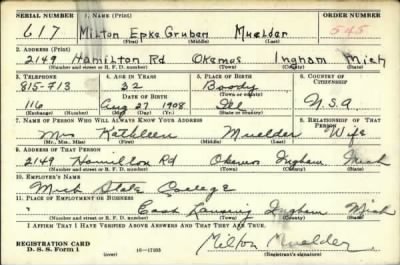 SERIAL NUMBER 1. NAME (Print) ORDER NUMBER
617 Milton Epke Gruben Muelder 545
(First) (Middle) (Last)
2. ADDRESS (Print)
2149 Hamilton Rd Okemos Ingham Mich
(Number and street or R. F. D. number) (Town) (County) (State)
3. TELEPHONE 4. AGE IN YEARS 5. PLACE OF BIRTH 6. COUNTRY OF CITIZENSHIP
815-F13 32 Boody
DATE OF BIRTH (Town or county)
116 Aug 27 1908 Ill U.S.A.
(Exchange) (Number) (Mo.) (Day) (Yr.) (State or country)
7. NAME OF PERSON WHO WILL ALWAYS KNOW YOUR ADDRESS 8. RELATIONSHIP OF THAT PERSON
Mrs Kathleen Muelder Wife
(Mr., Mrs., Miss) (First) (Middle) (Last)
9. ADDRESS OF THAT PERSON
2149 Hamilton Rd Okemos Ingham Mich
(Number and street or R. F. D. number) (Town) (County) (State)
10. EMPLOYER'S NAME
Mich State College
11. PLACE OF EMPLOYMENT OR BUSINESS
East Lansing Ingham Mich
(Number and street or R. F. D. number) (Town) (County) (State)
I AFFIRM THAT I HAVE VERIFIED ABOVE ANSWERS AND THAT THEY ARE TRUE.
REGISTRATION CARD
D. S. S. Form 1 (over) 16-17105 Milton Muelder
(Registrant's signature)